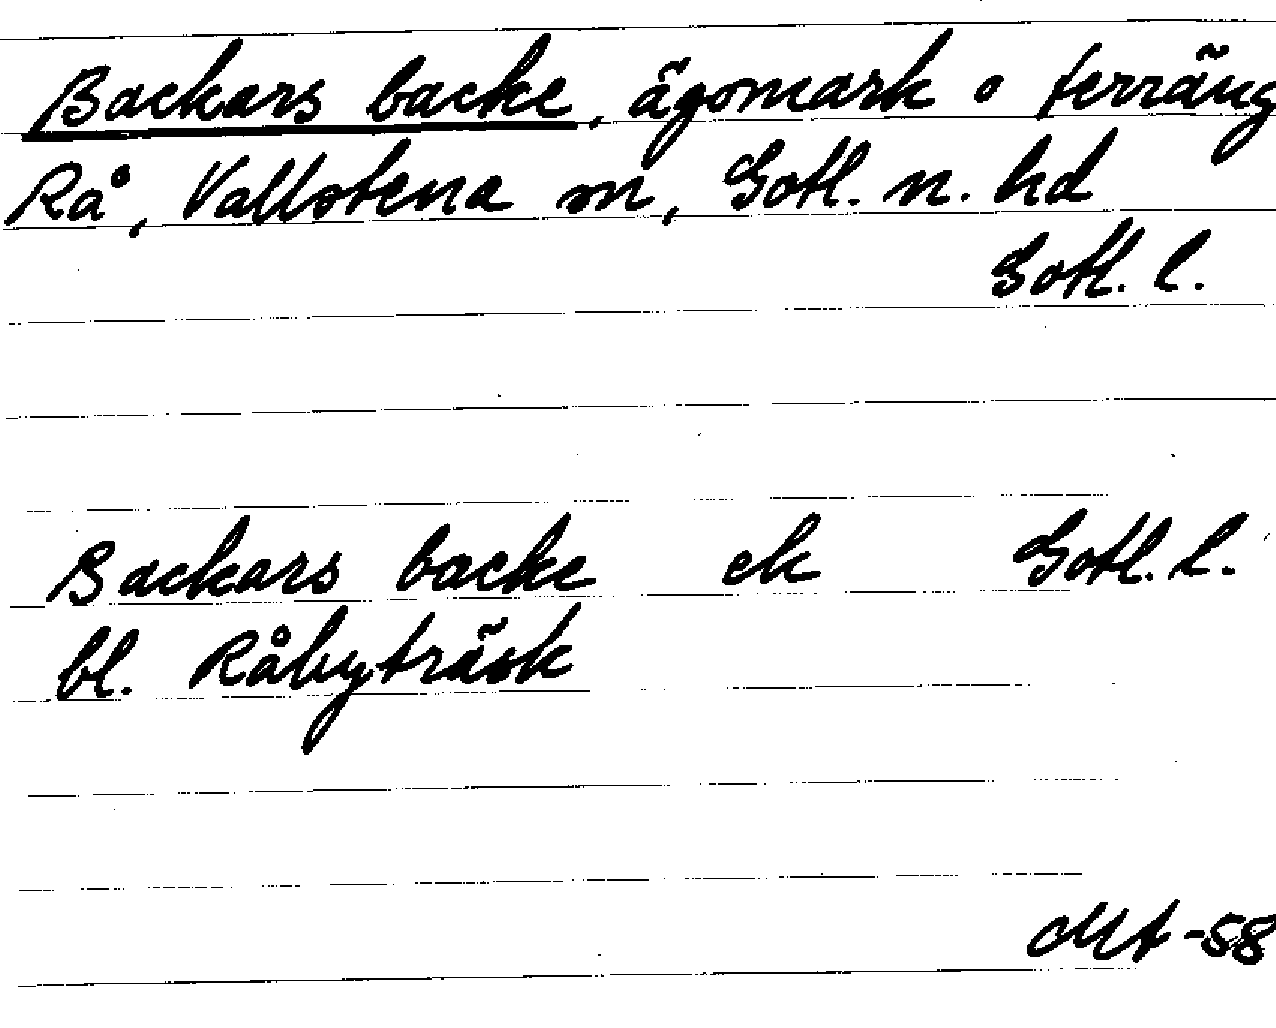 Backars backe, ägomark o terräng
Rå, Vallstena sn, Gotl. n. hd
Gotl. l.
Backars backe ek Gotl. l.
bl. Råbyträsk
Mt -58